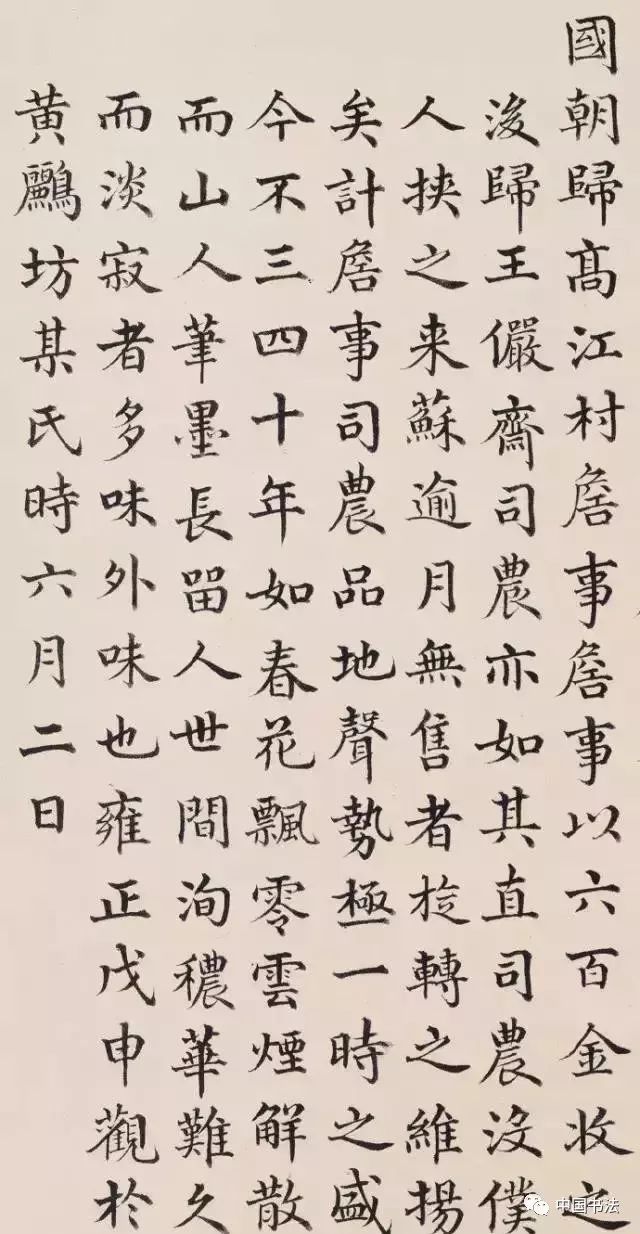 國朝歸高江村詹事詹事以六百金收之
後歸王儼齋司農亦如其直司農没僕
人挾之来蘇逾月無售者旋轉之維揚
矣計詹事司農品地聲勢極一時之盛
今不三四十年如春花飄零雲煙解散
而山人筆墨長留人世間洵穠華難久
而淡寂者多味外味也雍正戊申觀於
黄鸝坊某氏時六月二日
中国书法